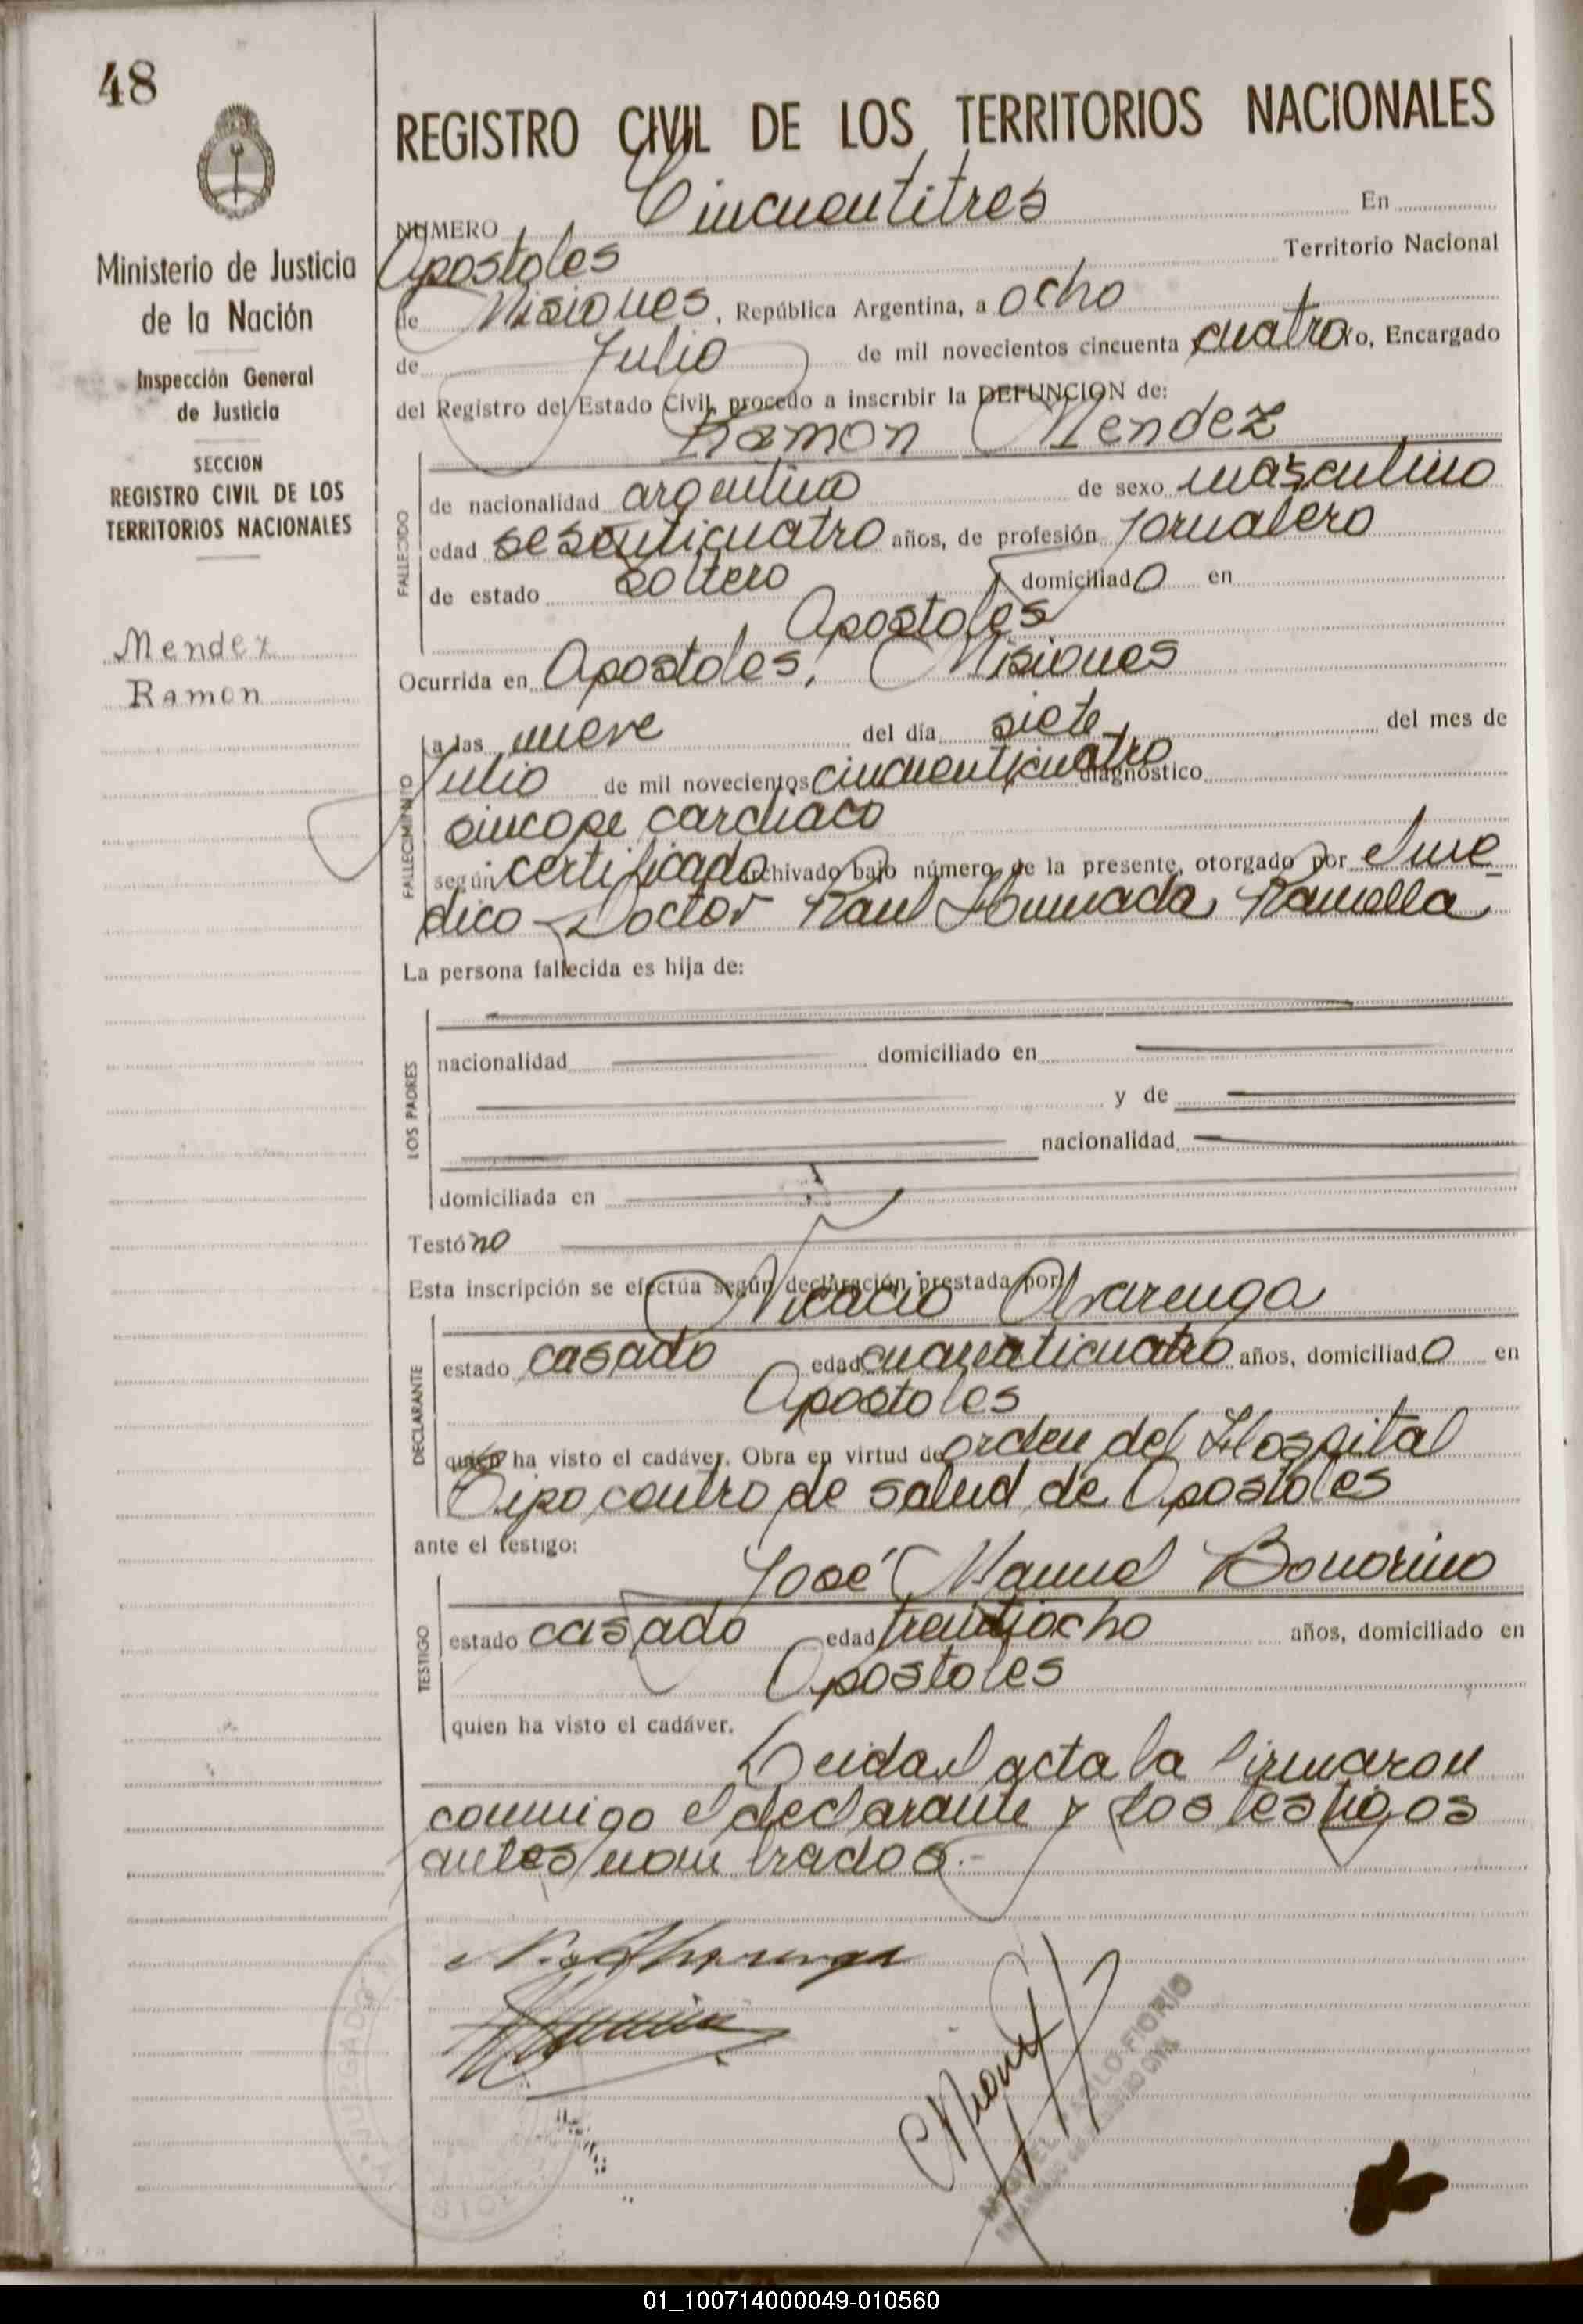 48
Ministerio de Justicia
de la Nación
Inspección General
de Justicia
SECCION
REGISTRO CIVIL DE LOS
TERRITORIOS NACIONALES
Mendez
Ramon
REGISTRO CIVIL DE LOS TERRITORIOS NACIONALES
NUMERO Cincuentitres En
Apostoles Territorio Nacional
de Misiones, República Argentina, a ocho
de Julio de mil novecientos cincuenta cuatro yo, Encargado
del Registro del Estado Civil, procedo a inscribir la DEFUNCION de:
Ramon Mendez
FALLECIDO
de nacionalidad argentina de sexo masculino
edad sesenticuatro años, de profesión Jornalero
de estado soltero domiciliado en
Apostoles
Ocurrida en Apostoles, Misiones
FALLECIMIENTO
a las nueve del día siete del mes de
Julio de mil novecientos cincuenticuatro diagnóstico
sincope cardiaco
según certificado archivado bajo número de la presente, otorgado por el me
dico Doctor Raul Ramella
La persona fallecida es hija de:
LOS PADRES
nacionalidad domiciliado en
y de
nacionalidad
domiciliada en
Testó no
Esta inscripción se efectúa según declaración prestada por
Nicacio Alvarenga
DECLARANTE
estado casado edad cuarenticuatro años, domiciliado en
Apostoles
quien ha visto el cadáver. Obra en virtud de orden del Hospital
Tipo centro de salud de Apostoles
ante el testigo:
José Manuel Bonorino
TESTIGO
estado casado edad trentiocho años, domiciliado en
Apostoles
quien ha visto el cadáver.
Leida el acta la firmaron
conmigo el declarante y los testigos
antes nombrados.-
N. Alvarenga
FIORIO
01_100714000049-010560